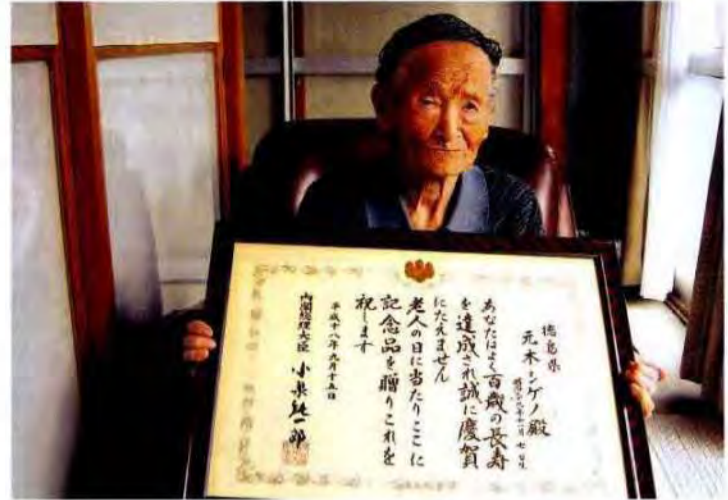 徳島県
元木シゲノ殿
あなたはよく百歳の長寿
を達成され誠に慶賀
にたえません
老人の日に当たりここに
記念品を贈りこれを
祝します
平成十八年九月十五日
内閣総理大臣 小泉純一郎